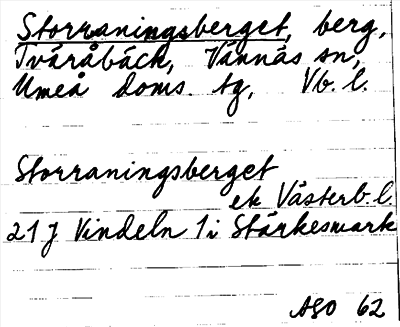 Storraningsberget, berg,
Tväråbäck, Vännäs sn,
Umeå doms. tg, Vb. l.
Storraningsberget
ek Västerb. l.
21 J Vindeln 1 i Stärkesmark
AGO 62